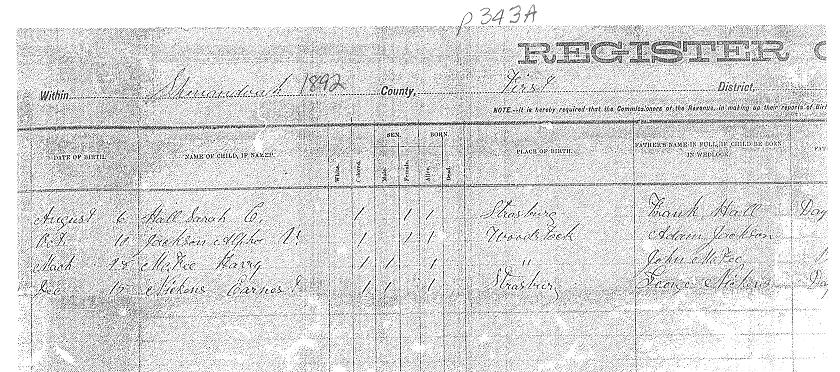 p 343A
REGISTER
Within Shenandoah 1892 County, First District,
NOTE.—It is hereby required that the Commissioners of the Revenue, in making up their reports of Birt
DATE OF BIRTH. NAME OF CHILD, IF NAMED. White. Colored. SEX. Male. Female. BORN Alive. Dead. PLACE OF BIRTH. FATHER'S NAME IN FULL, IF CHILD BE BORN IN WEDLOCK FAT
August 6 Hall Sarah C. 1 1 1 Strasburg Frank Hall Day
Oct 10 Jackson 1 1 1 Woodstock Adam Jackson
Mach McKee Harry 1 1 1 " John McKee
Dec Nickens 1 1 1 Strasburg George Nickens Day